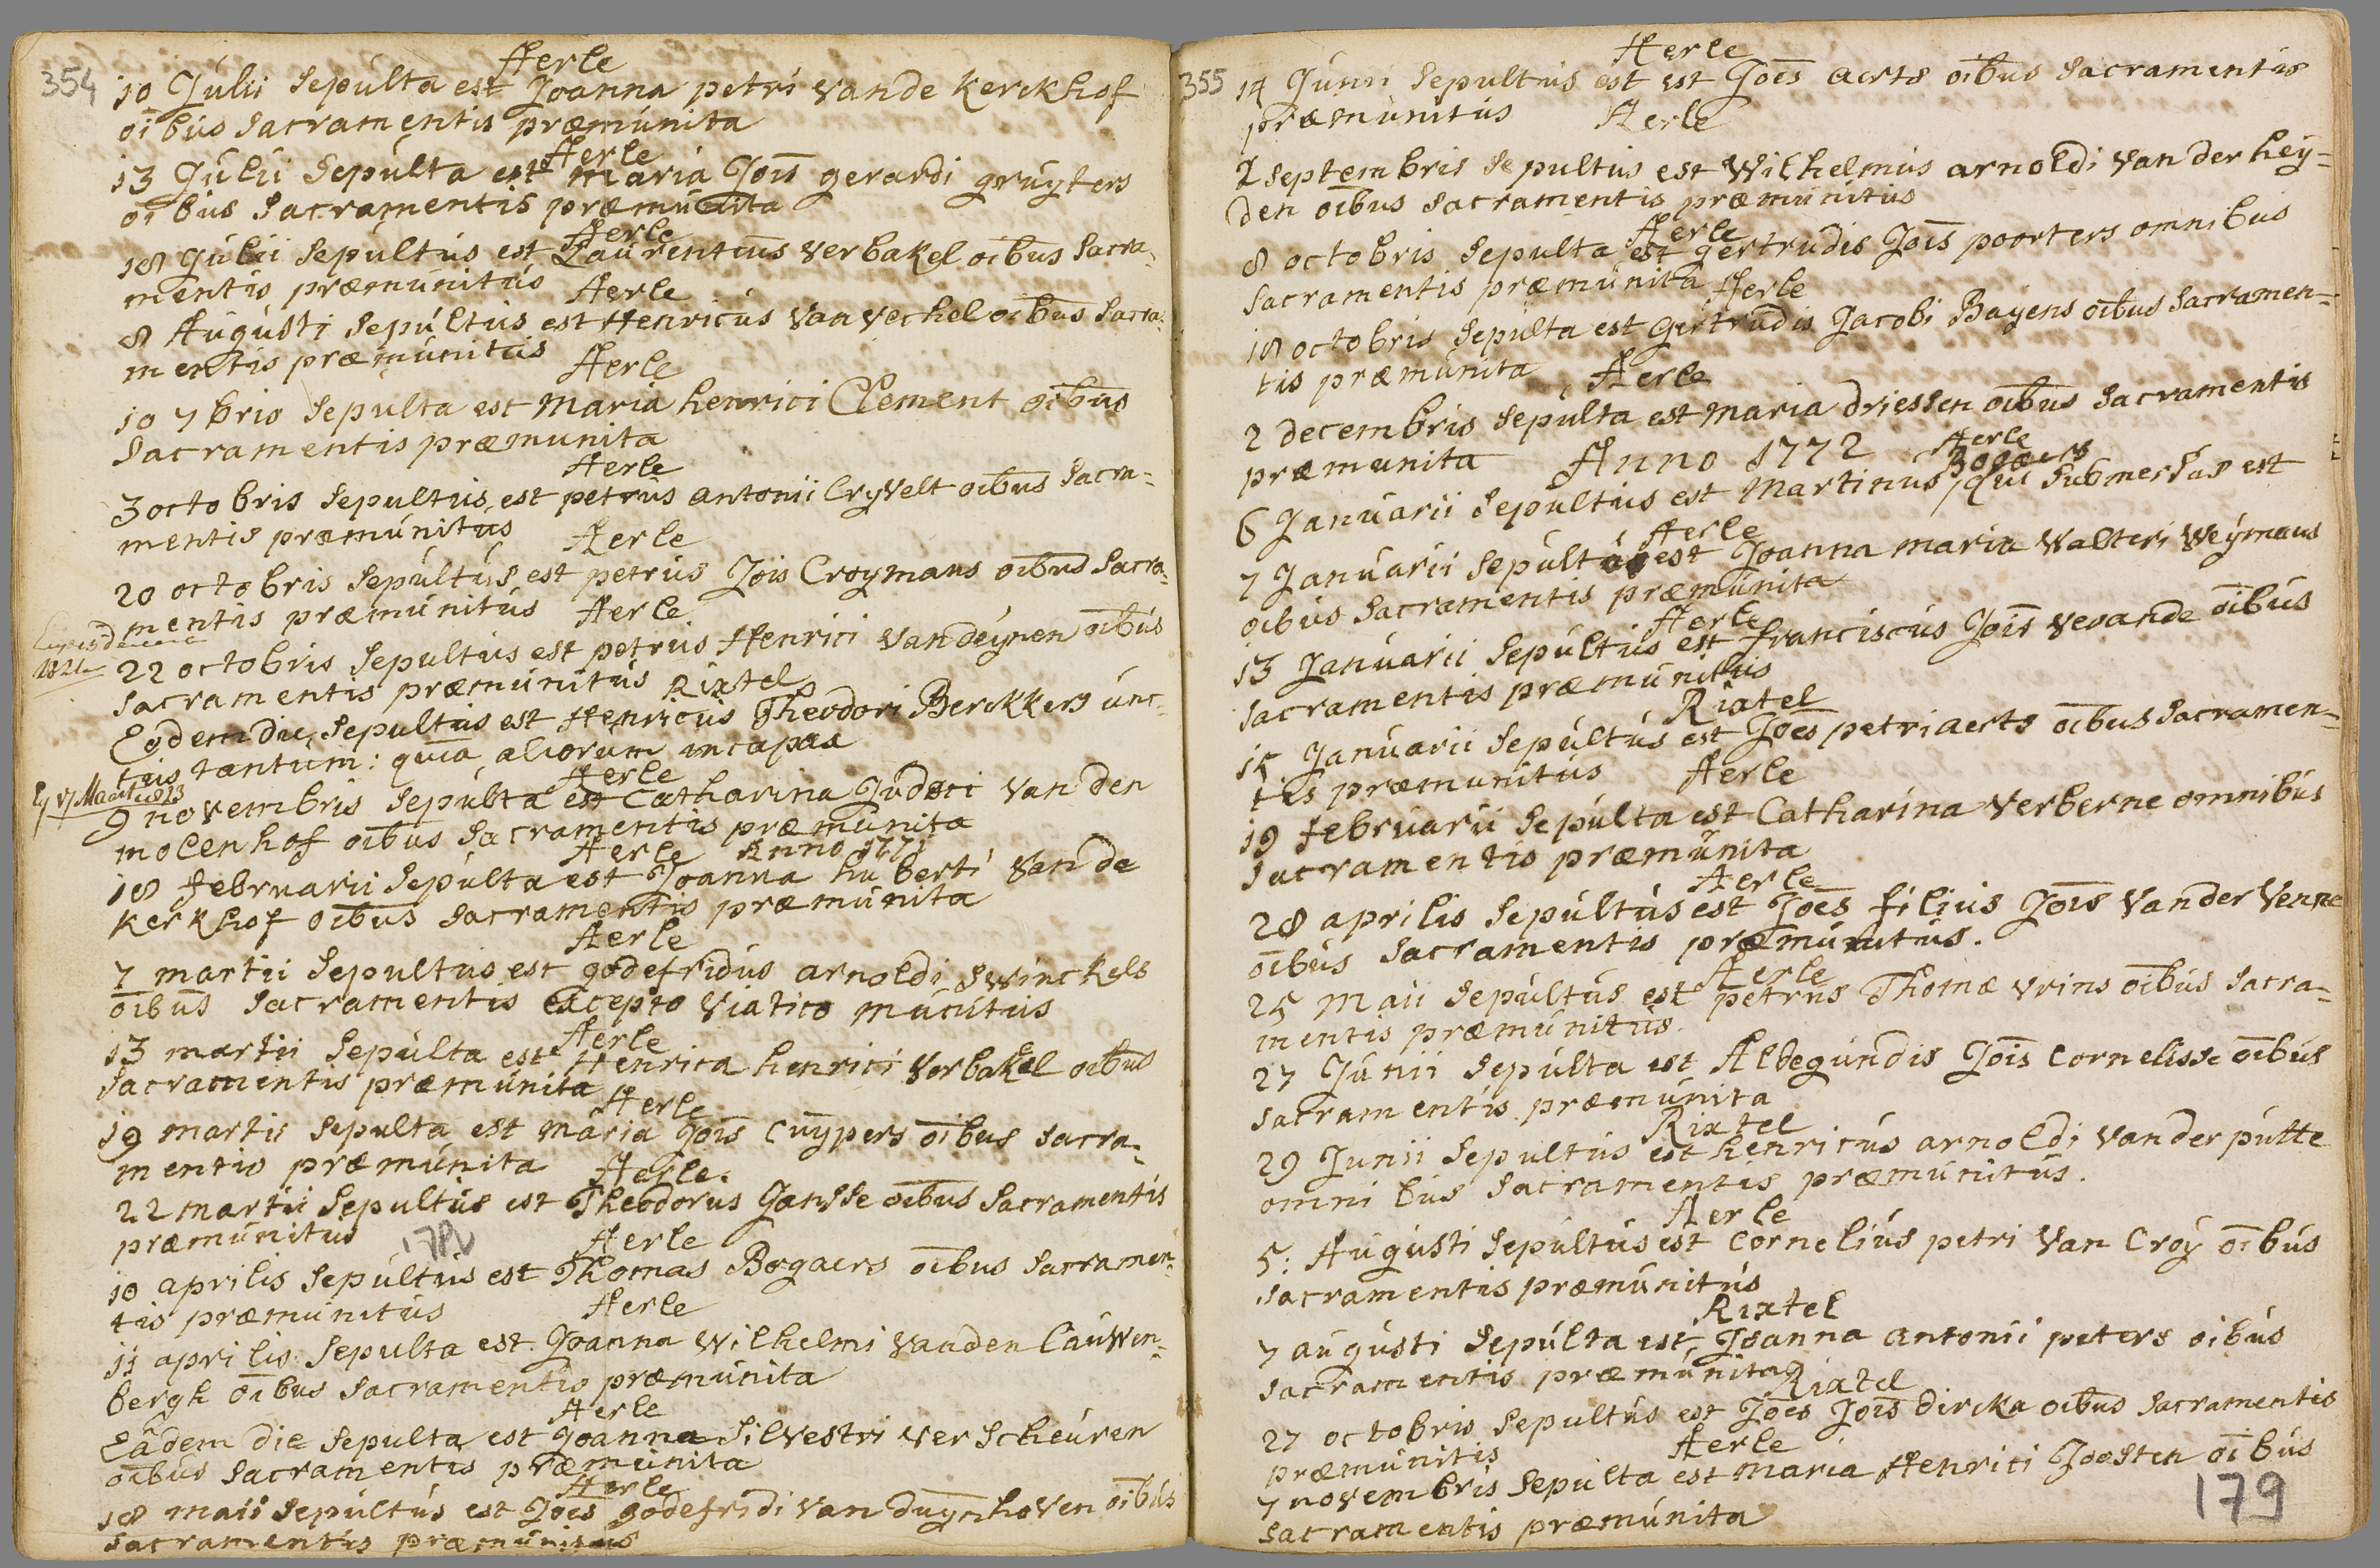 354
Aerle
10 Julii Sepulta est Joanna petri vande Kerckhof
oibus Sacramentis præmunita
Aerle
13 Julii Sepulta est maria Jois gerardi gruyters
oibus Sacramentis præmunita
Aerle
18 Julii Sepultus est Laurentius verbakel oibus Sacra-
mentis præmunitus
Aerle
8 Augusti Sepultus est Henricus Van vechel oibus Sacra-
mentis præmunitus
Aerle
10 7bris Sepulta est Maria henrici Clement oibus
Sacramentis præmunita
Aerle
3 octobris Sepultus est petrus antonii Cryvelt oibus Sacra-
mentis præmunitus
Aerle
20 octobris Sepultus est petrus Jois Croymans oibus Sacra-
mentis præmunitus
Aerle
22 octobris Sepultus est petrus Henrici van deynen oibus
Sacramentis præmunitus
Rixtel
Eodem die Sepultus est Henricus Theodori Berckkers unc-
tus tantum: quia aliorum incapax
Aerle
9 novembris Sepulta est Catharina Judoci van den
molenhof oibus Sacramentis præmunita
Aerle Anno 1771
18 februarii Sepulta est Joanna huberti van de
kerkhof oibus Sacramentis præmunita
Aerle
7 martii Sepultus est godefridus arnoldi Swinckels
oibus Sacramentis excepto viatico munitus
Aerle
13 martii Sepulta est Henrica henrici Verbakel oibus
Sacramentis præmunita
Aerle
19 martii Sepulta est maria Jois Cuypers oibus Sacra-
mentis præmunita
Aerle.
22 martii Sepultus est Theodorus Jansse oibus Sacramentis
præmunitus
178v
Aerle
10 aprilis Sepultus est Thomas Bogaers oibus Sacramen-
tis præmunitus
Aerle
11 aprilis Sepulta est Joanna Wilhelmi vanden Cauwen-
bergh oibus Sacramentis præmunita
Aerle
Eâdem die Sepulta est Joanna Silvestri ver Scheuren
oibus Sacramentis præmunita
Aerle
18 maii Sepultus est Joes godefridi van duynhoven oibus
Sacramentis præmunitus
355
Aerle
14 Junii Sepultus est est Joes aerts oibus Sacramentis
præmunitus
Aerle
2 Septembris Sepultus est Wilhelmus arnoldi van der hey=
den oibus Sacramentis præmunitus
Aerle
8 octobris Sepulta est gertrudis Jois poorters omnibus
Sacramentis præmunita
Aerle
18 octobris Sepulta est gertrudis Jacobi Bayens oibus Sacramen=
tis præmunita
Aerle
2 decembris Sepulta est maria driessen oibus Sacramentis
præmunita
Anno 1772
Aerle
6 Januarii Sepultus est Martinus Bogaers qui Submersus est
Aerle
7 Januarii Sepulta est Joanna maria Walteri Weymans
oibus Sacramentis præmunita
Aerle
13 Januarii Sepultus est franciscus Jois verande oibus
Sacramentis præmunitus
Rixtel
15 Januarii Sepultus est Joes petri aerts oibus Sacramen=
tis præmunitus
Aerle
19 februarii Sepulta est Catharina Verberne omnibus
Sacramentis præmunita
Aerle
28 aprilis Sepultus est Joes filius Jois van der Venne
oibus Sacramentis præmunitus.
Aerle
25 Maii Sepultus est petrus Thomæ vrins oibus Sacra=
mentis præmunitus.
27 Junii Sepulta est Aldegundis Jois Cornelisse oibus
Sacramentis præmunita
Rixtel
29 Junii Sepultus est henricus arnoldi van der putte
omnibus Sacramentis præmunitus.
Aerle
5: Augusti Sepultus est Cornelius petri van Croy oibus
Sacramentis præmunitus
Rixtel
7 augusti Sepulta est Joanna antonii peters oibus
Sacramentis præmunita
Rixtel
27 octobris Sepultus est Joes Jois dircka oibus Sacramentis
præmunitis
Aerle
7 novembris Sepulta est maria Henrici Joosten oibus
Sacramentis præmunita
179